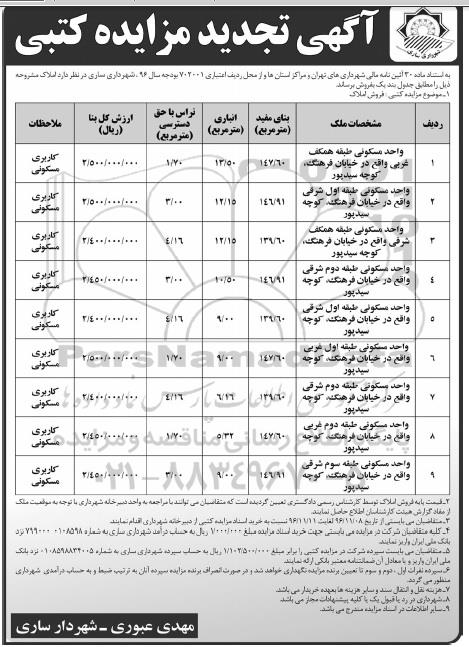 آگهی تجدید مزایده کتبی
شهرداری ساری
به استناد ماده ۳۰ آئین نامه مالی شهرداری های تهران و مراکز استان ها و از محل ردیف اعتباری ۷۰۲۰۰۱ بودجه سال ۹۶، شهرداری ساری در نظر دارد املاک مشروحه
ذیل را مطابق جدول بند یک بفروش برساند.
۱- موضوع مزایده کتبی: فروش املاک
ردیف مشخصات ملک بنای مفید (مترمربع) انباری (مترمربع) تراس با حق دسترسی (مترمربع) ارزش کل بنا (ریال) ملاحظات
۱ واحد مسکونی طبقه همکف غربی واقع در خیابان فرهنگ، کوچه سیدپور ۱۴۷/۶۰ ۱۳/۵۰ ۱/۷۰ ۲/۵۰۰/۰۰۰/۰۰۰ کاربری مسکونی
۲ واحد مسکونی طبقه اول شرقی واقع در خیابان فرهنگ، کوچه سیدپور ۱۴۶/۹۱ ۱۲/۱۵ ۳/۰۰ ۲/۵۰۰/۰۰۰/۰۰۰ کاربری مسکونی
۳ واحد مسکونی طبقه همکف شرقی واقع در خیابان فرهنگ، کوچه سیدپور ۱۳۹/۶۰ ۱۲/۱۵ ۴/۱۶ ۲/۴۰۰/۰۰۰/۰۰۰ کاربری مسکونی
۴ واحد مسکونی طبقه دوم شرقی واقع در خیابان فرهنگ، کوچه سیدپور ۱۴۶/۹۱ ۱۰/۵۰ ۳/۰۰ ۲/۴۵۰/۰۰۰/۰۰۰ کاربری مسکونی
۵ واحد مسکونی طبقه اول شرقی واقع در خیابان فرهنگ، کوچه سیدپور ۱۳۹/۶۰ ۹/۰۰ ۴/۱۶ ۲/۴۰۰/۰۰۰/۰۰۰ کاربری مسکونی
۶ واحد مسکونی طبقه اول غربی واقع در خیابان فرهنگ، کوچه سیدپور ۱۴۷/۶۰ ۹/۰۰ ۱/۷۰ ۲/۵۰۰/۰۰۰/۰۰۰ کاربری مسکونی
۷ واحد مسکونی طبقه دوم شرقی واقع در خیابان فرهنگ، کوچه سیدپور ۱۳۹/۶۰ ۶/۴۶ ۴/۱۶ ۲/۴۰۰/۰۰۰/۰۰۰ کاربری مسکونی
۸ واحد مسکونی طبقه دوم غربی واقع در خیابان فرهنگ، کوچه سیدپور ۱۴۷/۶۰ ۵/۳۲ ۱/۷۰ ۲/۴۵۰/۰۰۰/۰۰۰ کاربری مسکونی
۹ واحد مسکونی طبقه سوم شرقی واقع در خیابان فرهنگ، کوچه سیدپور ۱۴۶/۹۱ ۹/۰۰ ۳/۰۰ ۲/۴۵۰/۰۰۰/۰۰۰ کاربری مسکونی
۲- قیمت پایه فروش املاک توسط کارشناس رسمی دادگستری تعیین گردیده است که متقاضیان می توانند با مراجعه به واحد دبیرخانه شهرداری با توجه به موقعیت ملک
از مفاد گزارش هیئت کارشناسان اطلاع حاصل نمایند.
۳- متقاضیان می بایستی از تاریخ ۹۶/۱۱/۰۸ لغایت ۹۶/۱۱/۱۱ نسبت به خرید اسناد مزایده کتبی از دبیرخانه شهرداری اقدام نمایند.
۴- کلیه متقاضیان شرکت در مزایده می بایستی جهت خرید اسناد مزایده مبلغ ۱/۰۰۰/۰۰۰ ریال به حساب درآمد شهرداری به شماره ۰۱۰۸۵۹۸۰۷۹۹۰۰۰ نزد
بانک ملی ایران واریز نمایند.
۵- متقاضیان می بایست سپرده شرکت در مزایده کتبی را برابر مبلغ ۱/۱۰۲/۵۰۰/۰۰۰ ریال به حساب سپرده شهرداری ساری به شماره ۰۱۰۸۵۹۸۸۳۴۰۰۵ نزد بانک
ملی ایران واریز و یا معادل آن ضمانتنامه معتبر بانکی ارائه نمایند.
۶- سپرده نفرات اول، دوم و سوم تا تعیین برنده مزایده نگهداری خواهد شد و در صورت انصراف برنده مزایده سپرده آنان به ترتیب ضبط و به حساب درآمدی شهرداری
منظور می گردد.
۷- هزینه نقل و انتقال سند و سایر هزینه ها بعهده خریدار می باشد.
۸- شهرداری در رد یا قبول یک یا کلیه پیشنهادات مجاز می باشد.
۹- سایر اطلاعات در اسناد مزایده مندرج می باشد.
مهدی عبوری - شهردار ساری
ParsNamadData